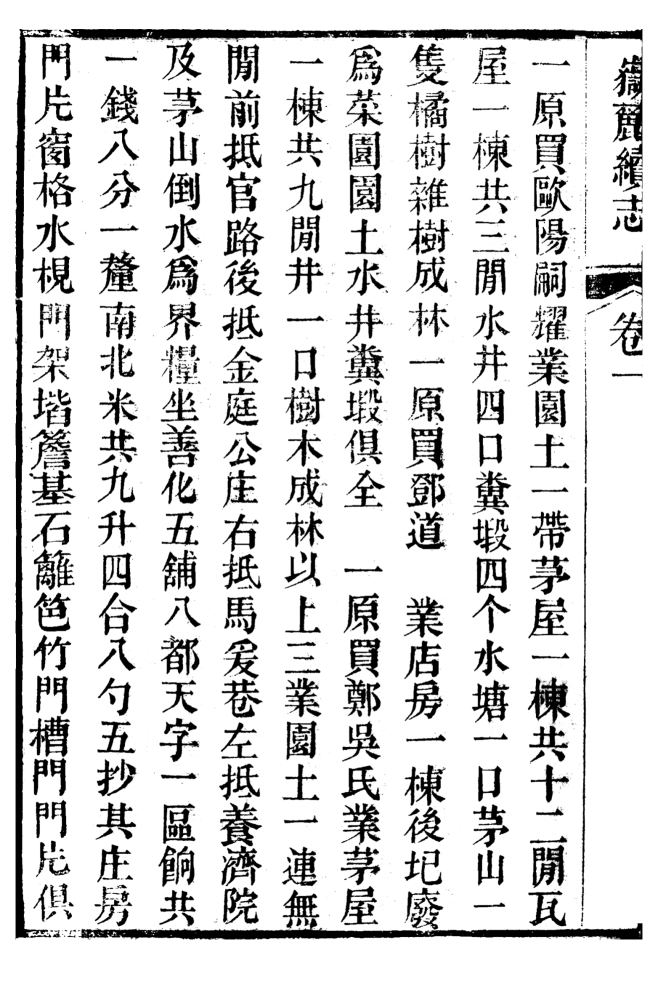 嶽麓續志 卷一
一原買歐陽嗣耀業園土一帶茅屋一棟共十二閒瓦
屋一棟共三閒水井四口糞塅四个水塘一口茅山一
隻橘樹雜樹成林一原買鄧道 業店房一棟後圯廢
爲菜園園土水井糞塅俱全 一原買鄭吳氏業茅屋
一棟共九閒井一口樹木成林以上三業園土一連無
閒前抵官路後抵金庭公庄右抵馬爰巷左抵養濟院
及茅山倒水爲界糧坐善化五舖八都天字一區餉共
一錢八分一釐南北米共九升四合八勺五抄其庄房
門片窗格水梘門架堦簷基石籬笆竹門槽門門片俱